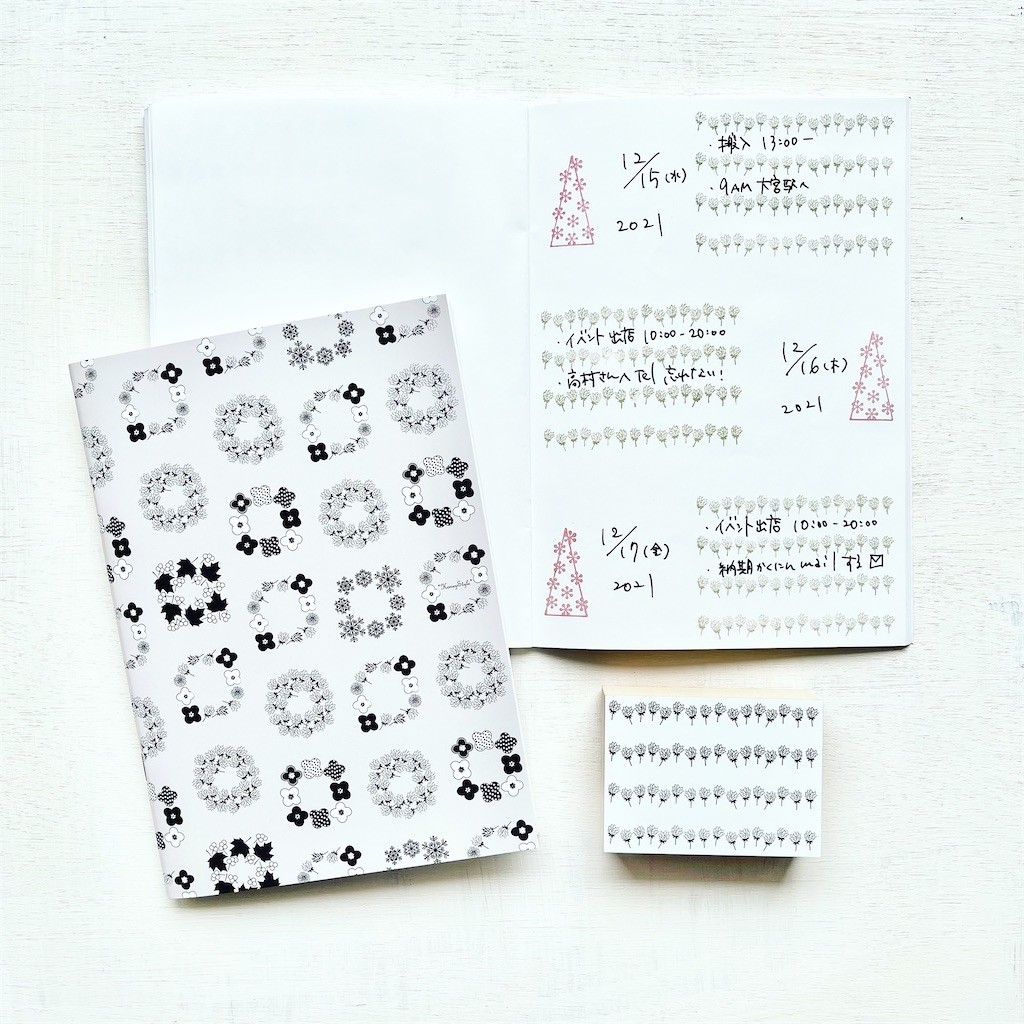 12/15(水)
2021
・搬入 13:00ー
・9AM 大宮駅へ
・イベント出店 10:00-20:00
・高村さんへ Tel 忘れない!
12/16(木)
2021
12/17(金)
2021
・イベント出店 10:00-20:00
・納期かくにん mailする